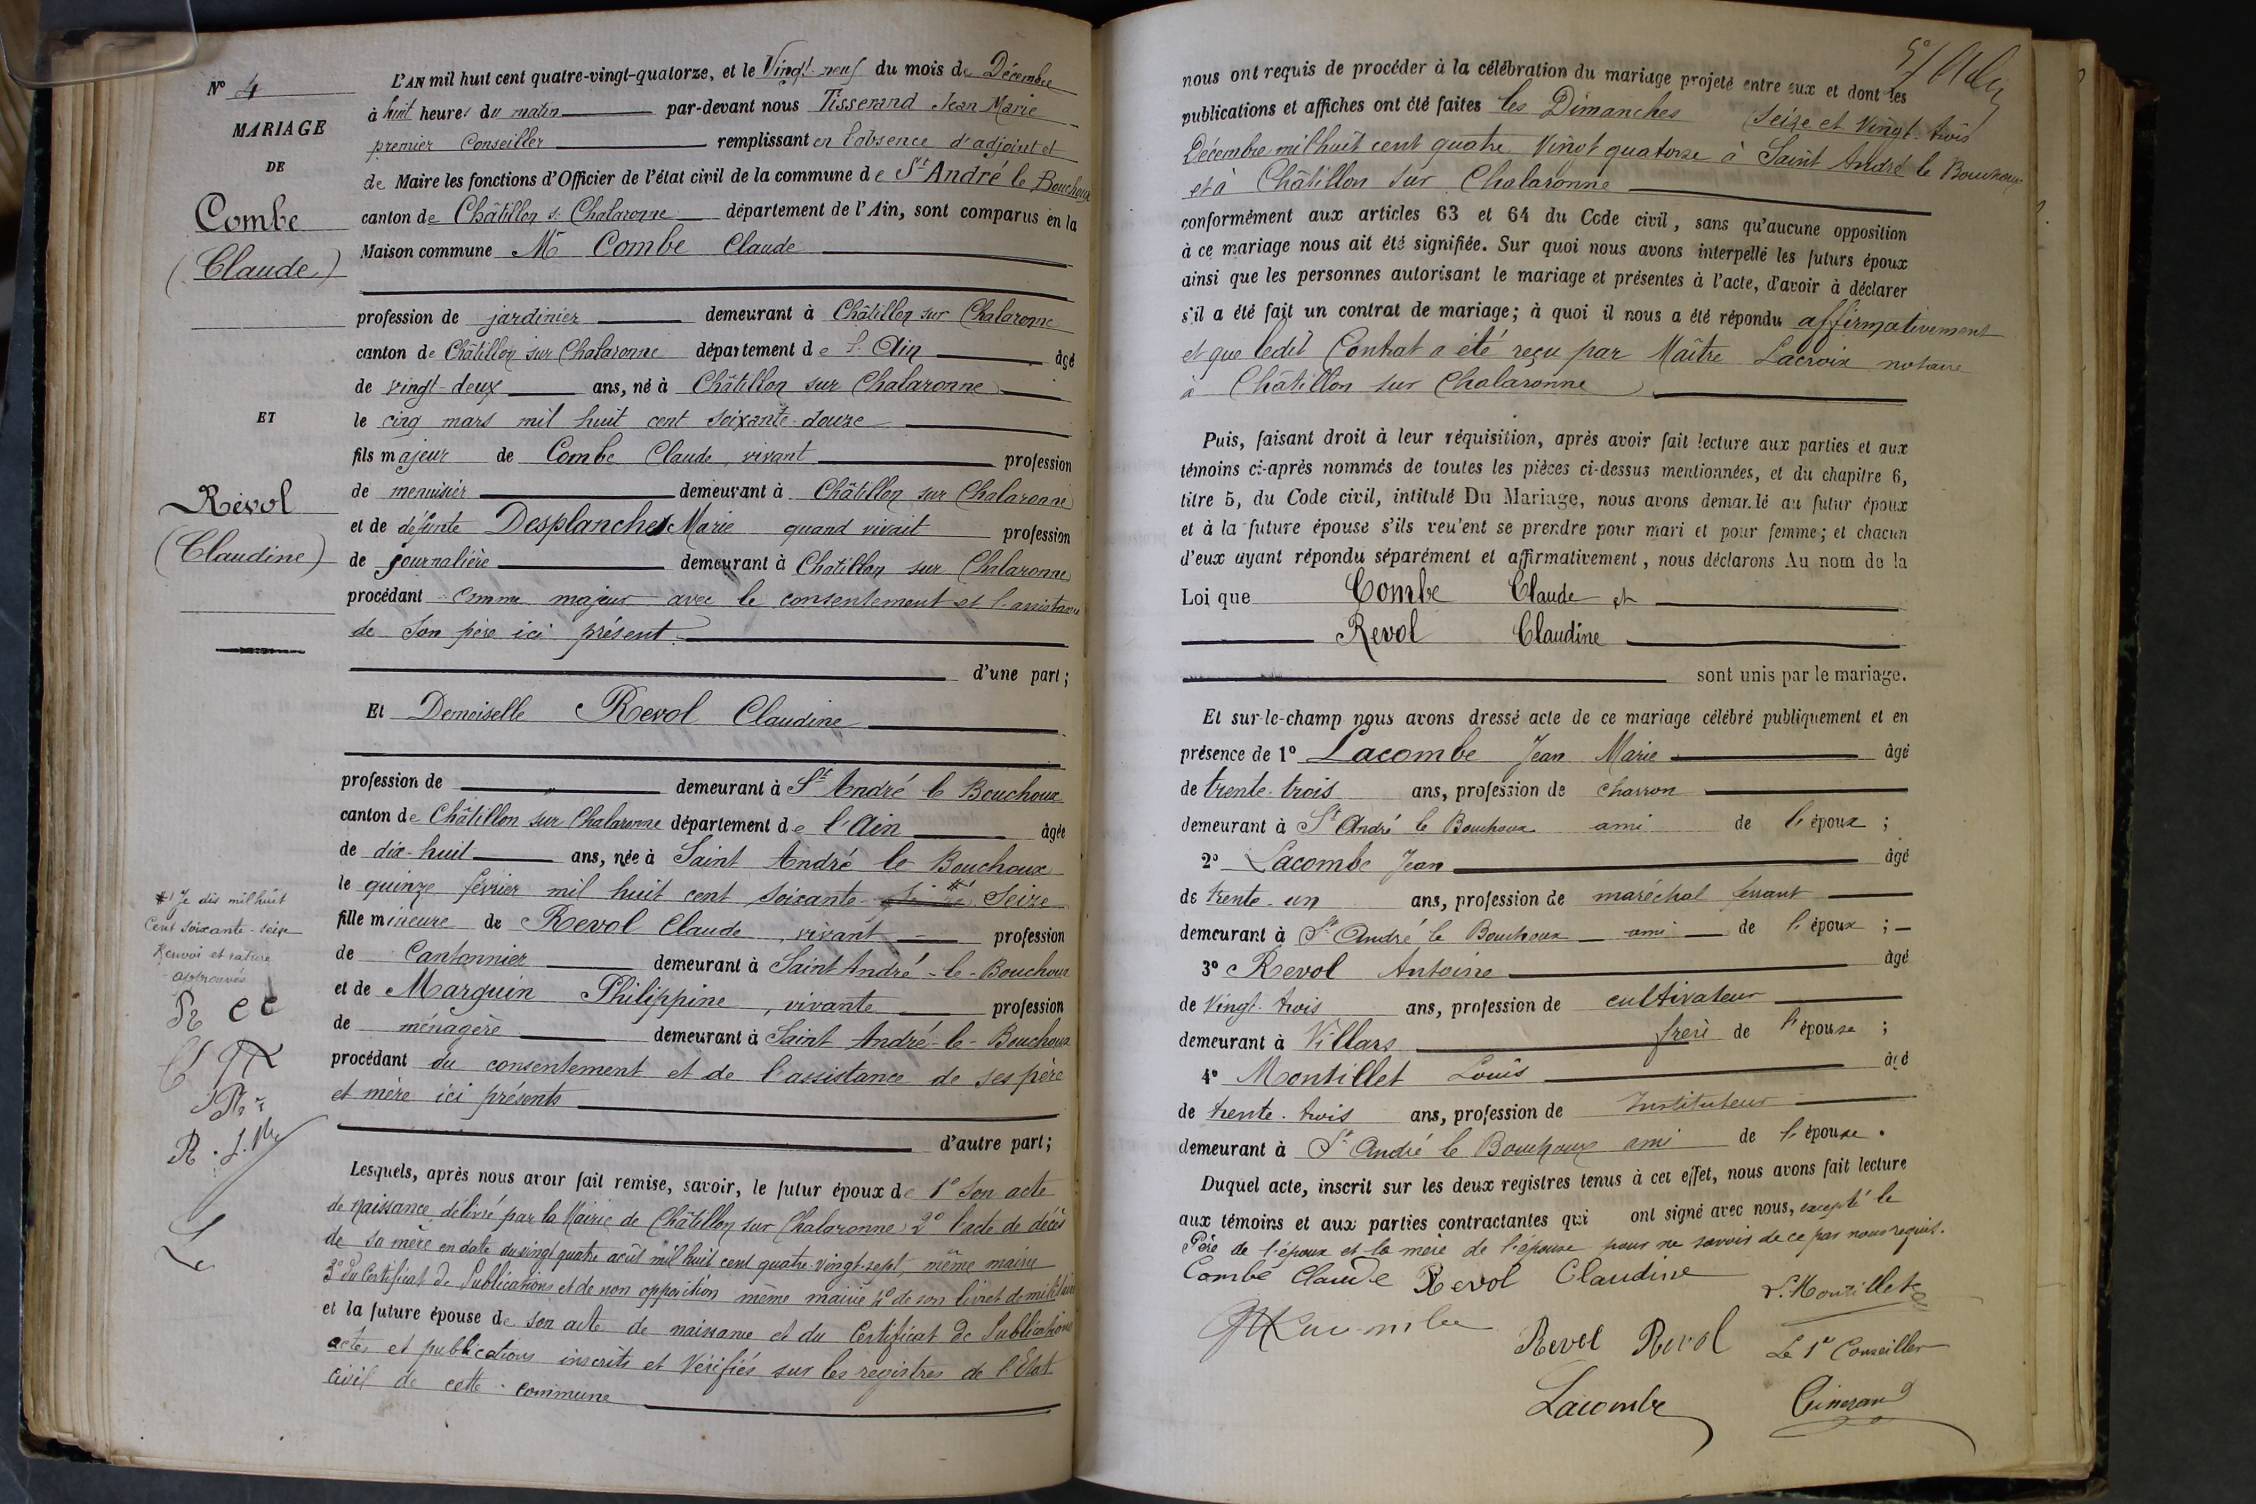 N° 4
MARIAGE
DE
Combe
(Claude)
ET
Revol
(Claudine)
#) Je dis mil huit
Cent soixante-seize
Renvoi et rature
approuvés
R C C
R
L'AN mil huit cent quatre-vingt-quatorze, et le Vingt-neuf du mois de Décembre
à huit heures du matin par-devant nous Tisserand Jean Marie
premier Conseiller remplissant en l'absence d'adjoint et
de Maire les fonctions d'Officier de l'état civil de la commune de St André le Bouchoux
canton de Châtillon s. Chalaronne département de l'Ain, sont comparus en la
Maison commune Mr Combe Claude
profession de jardinier demeurant à Châtillon sur Chalaronne
canton de Châtillon sur Chalaronne département de l'Ain âgé
de vingt-deux ans, né à Châtillon sur Chalaronne
le cinq mars mil huit cent soixante-douze
fils majeur de Combe Claude, vivant profession
de menuisier demeurant à Châtillon sur Chalaronne
et de défunte Desplanches Marie quand vivait profession
de journalière demeurant à Chatillon sur Chalaronne
procédant comme majeur avec le consentement et l'assistance
de son père ici présent
d'une part;
Et Demoiselle Revol Claudine
profession de " demeurant à St André le Bouchoux
canton de Châtillon sur Chalaronne département de l'Ain âgée
de dix-huit ans, née à Saint André le Bouchoux
le quinze février mil huit cent soixante- # Seize
fille mineure de Revol Claude, vivant profession
de Cantonnier demeurant à Saint André-le-Bouchoux
et de Marguin Philippine, vivante profession
de ménagère demeurant à Saint André-le-Bouchoux
procédant du consentement et de l'assistance de ses père
et mère ici présents
d'autre part;
Lesquels, après nous avoir fait remise, savoir, le futur époux de 1° Son acte
de naissance délivré par la Mairie de Châtillon sur Chalaronne 2° l'acte de décès
de sa mère en date du vingt quatre août mil huit cent quatre-vingt-sept, même mairie
3° du Certificat de Publications et de non opposition même mairie 4° de son livret de militaire
et la future épouse de son acte de naissance et du Certificat de Publications
actes et publications inscrits et Vérifiés sur les registres de l'Etat
civil de cette commune
nous ont requis de procéder à la célébration du mariage projeté entre eux et dont les
publications et affiches ont été faites les Dimanches Seize et Vingt-trois
Décembre mil huit cent quatre Vingt quatorze à Saint André le Bouchoux
et à Châtillon sur Chalaronne
conformément aux articles 63 et 64 du Code civil, sans qu'aucune opposition
à ce mariage nous ait été signifiée. Sur quoi nous avons interpellé les futurs époux
ainsi que les personnes autorisant le mariage et présentes à l'acte, d'avoir à déclarer
s'il a été fait un contrat de mariage; à quoi il nous a été répondu affirmativement
et que ledit Contrat a été reçu par Maître Lacroix notaire
à Châtillon sur Chalaronne
Puis, faisant droit à leur réquisition, après avoir fait lecture aux parties et aux
témoins ci-après nommés de toutes les pièces ci-dessus mentionnées, et du chapitre 6,
titre 5, du Code civil, intitulé Du Mariage, nous avons demandé au futur époux
et à la future épouse s'ils veulent se prendre pour mari et pour femme; et chacun
d'eux ayant répondu séparément et affirmativement, nous déclarons Au nom de la
Loi que Combe Claude et
Revol Claudine
sont unis par le mariage.
Et sur-le-champ nous avons dressé acte de ce mariage célébré publiquement et en
présence de 1° Lacombe Jean Marie âgé
de trente-trois ans, profession de charron
demeurant à St André le Bouchoux ami de l'époux;
2° Lacombe Jean âgé
de trente-un ans, profession de maréchal ferrant
demeurant à St André le Bouchoux ami de l'époux;
3° Revol Antoine âgé
de Vingt-trois ans, profession de cultivateur
demeurant à Villars frère de l'épouse;
4° Montillet Louis âgé
de trente-trois ans, profession de Instituteur
demeurant à St André le Bouchoux ami de l'épouse.
Duquel acte, inscrit sur les deux registres tenus à cet effet, nous avons fait lecture
aux témoins et aux parties contractantes qui ont signé avec nous, excepté le
Père de l'époux et la mère de l'épouse pour ne savoir de ce par nous requis.
Combe Claude Revol Claudine L. Montillet
Revol Revol Le 1er Conseiller
Lacombe Tisserand